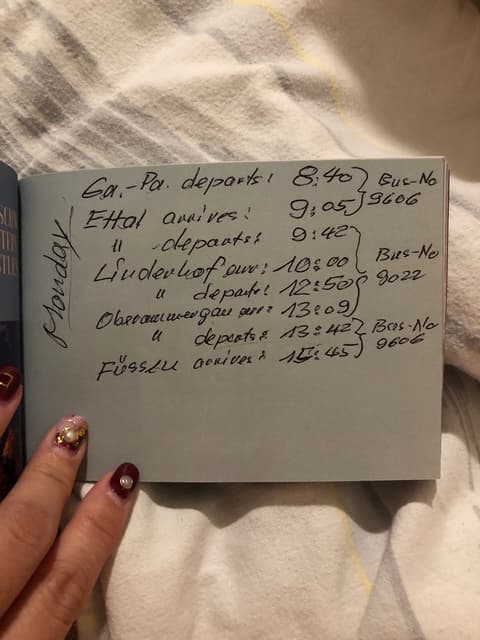 Monday
Ga.-Pa. departs: 8:40 } Bus-No
Ettal arrives: 9:05 } 9606
" departs: 9:42
Linderhof arr: 10:00 } Bus-No
" departs: 12:50 } 9022
Oberammergau arr: 13:09
" departs: 13:42 } Bus-No
Füssen arrives: 15:45 } 9606